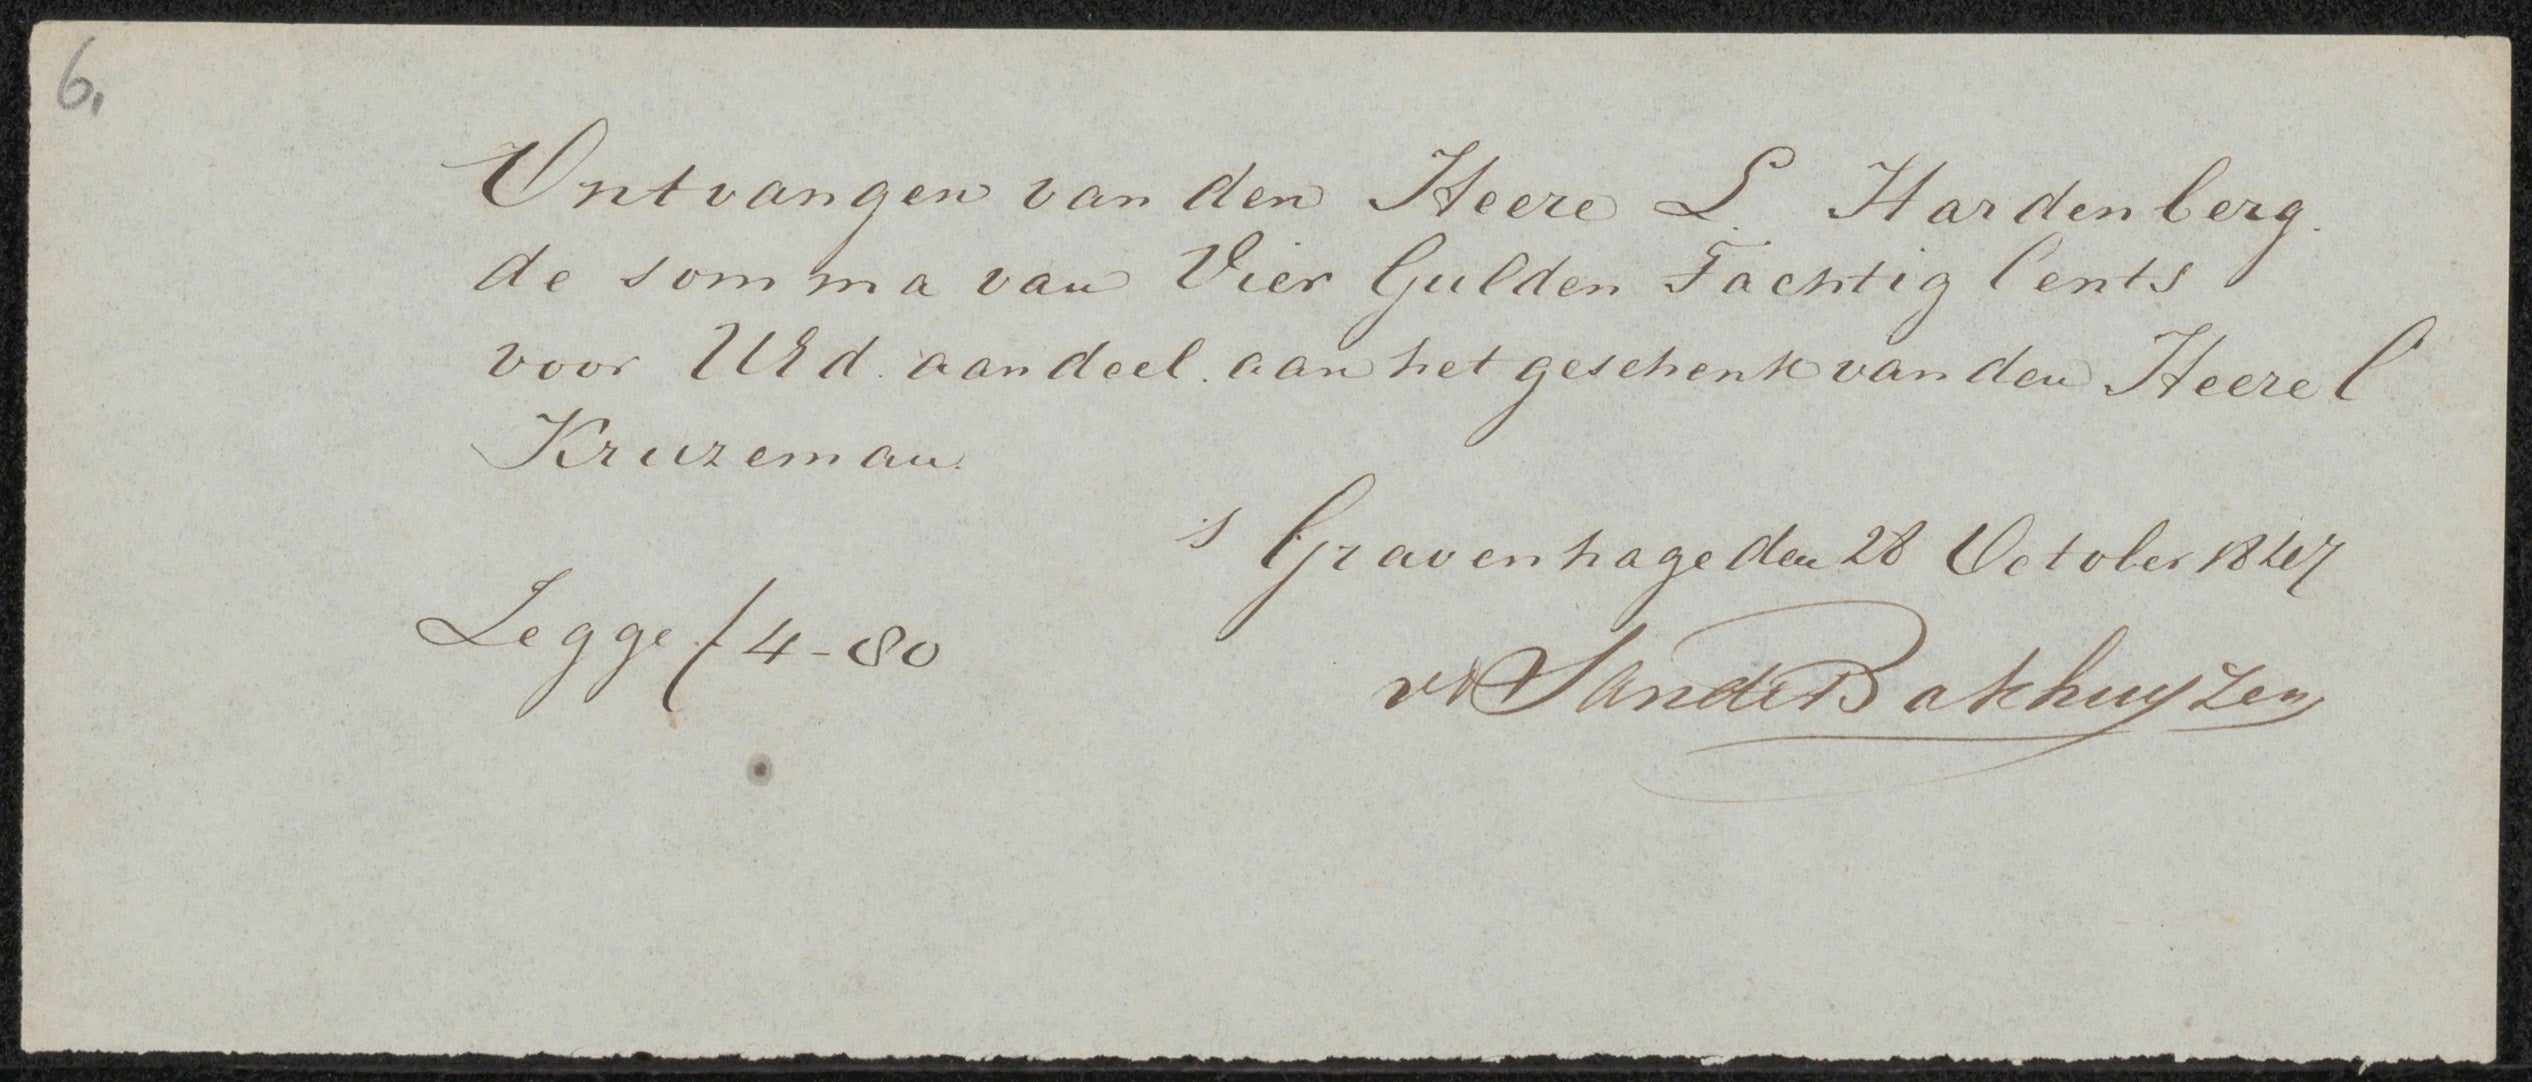 6.
Ontvangen van den Heere L. Hardenberg.
de somma van Vier Gulden Tachtig Cents
voor UEd. aandeel. aan het geschenk van den Heere C
Kruzeman.
s Gravenhage den 28 October 1847
Legge f 4-80
vd Sande Bakhuyzen